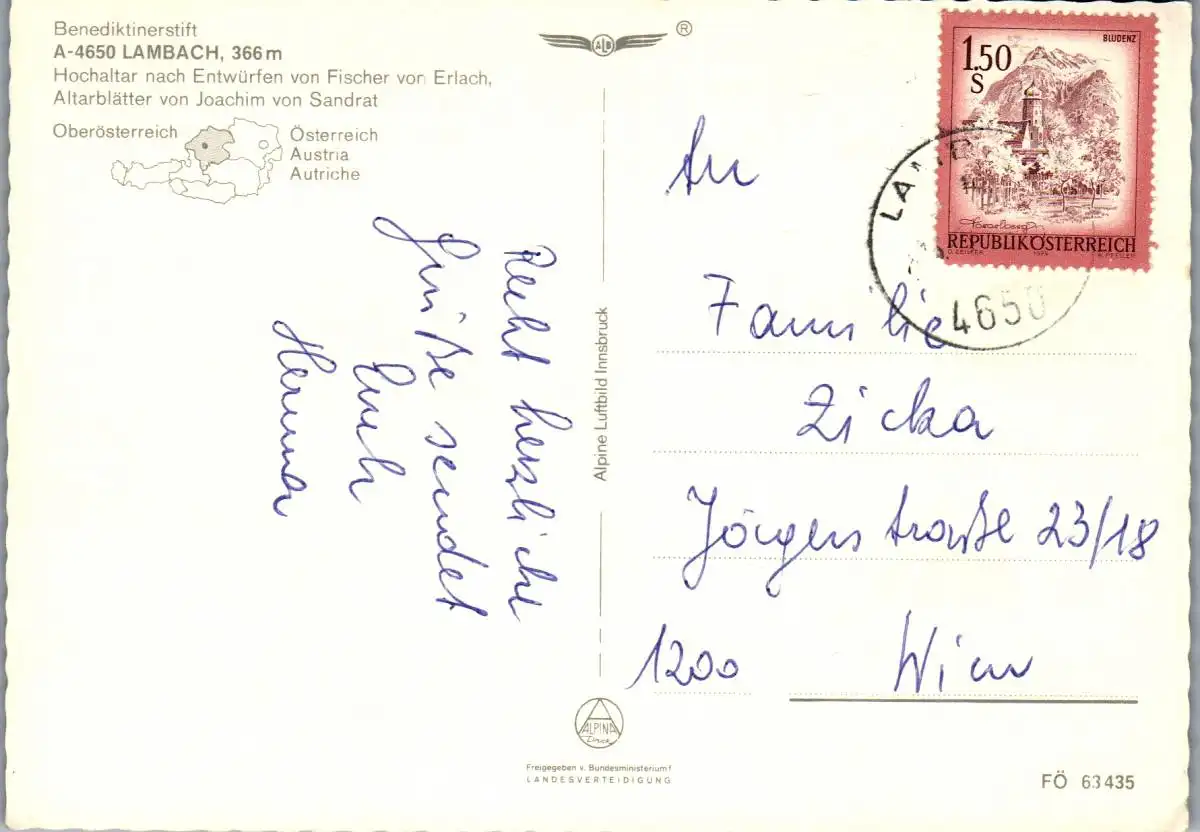 Benediktinerstift
A-4650 LAMBACH, 366 m
Hochaltar nach Entwürfen von Fischer von Erlach,
Altarblätter von Joachim von Sandrat
Oberösterreich
Österreich
Austria
Autriche
ALB
®
BLUDENZ
1.50
S
Vorarlberg
REPUBLIK ÖSTERREICH
1974
LAMB
4650
Recht herzliche
Grüße sendet
Euch
Herma
Alpine Luftbild Innsbruck
An
Familie
Zicka
Jörgerstraße 23/18
1200 Wien
ALPINA
Druck
Freigegeben v. Bundesministerium f
LANDESVERTEIDIGUNG
FÖ 63 435